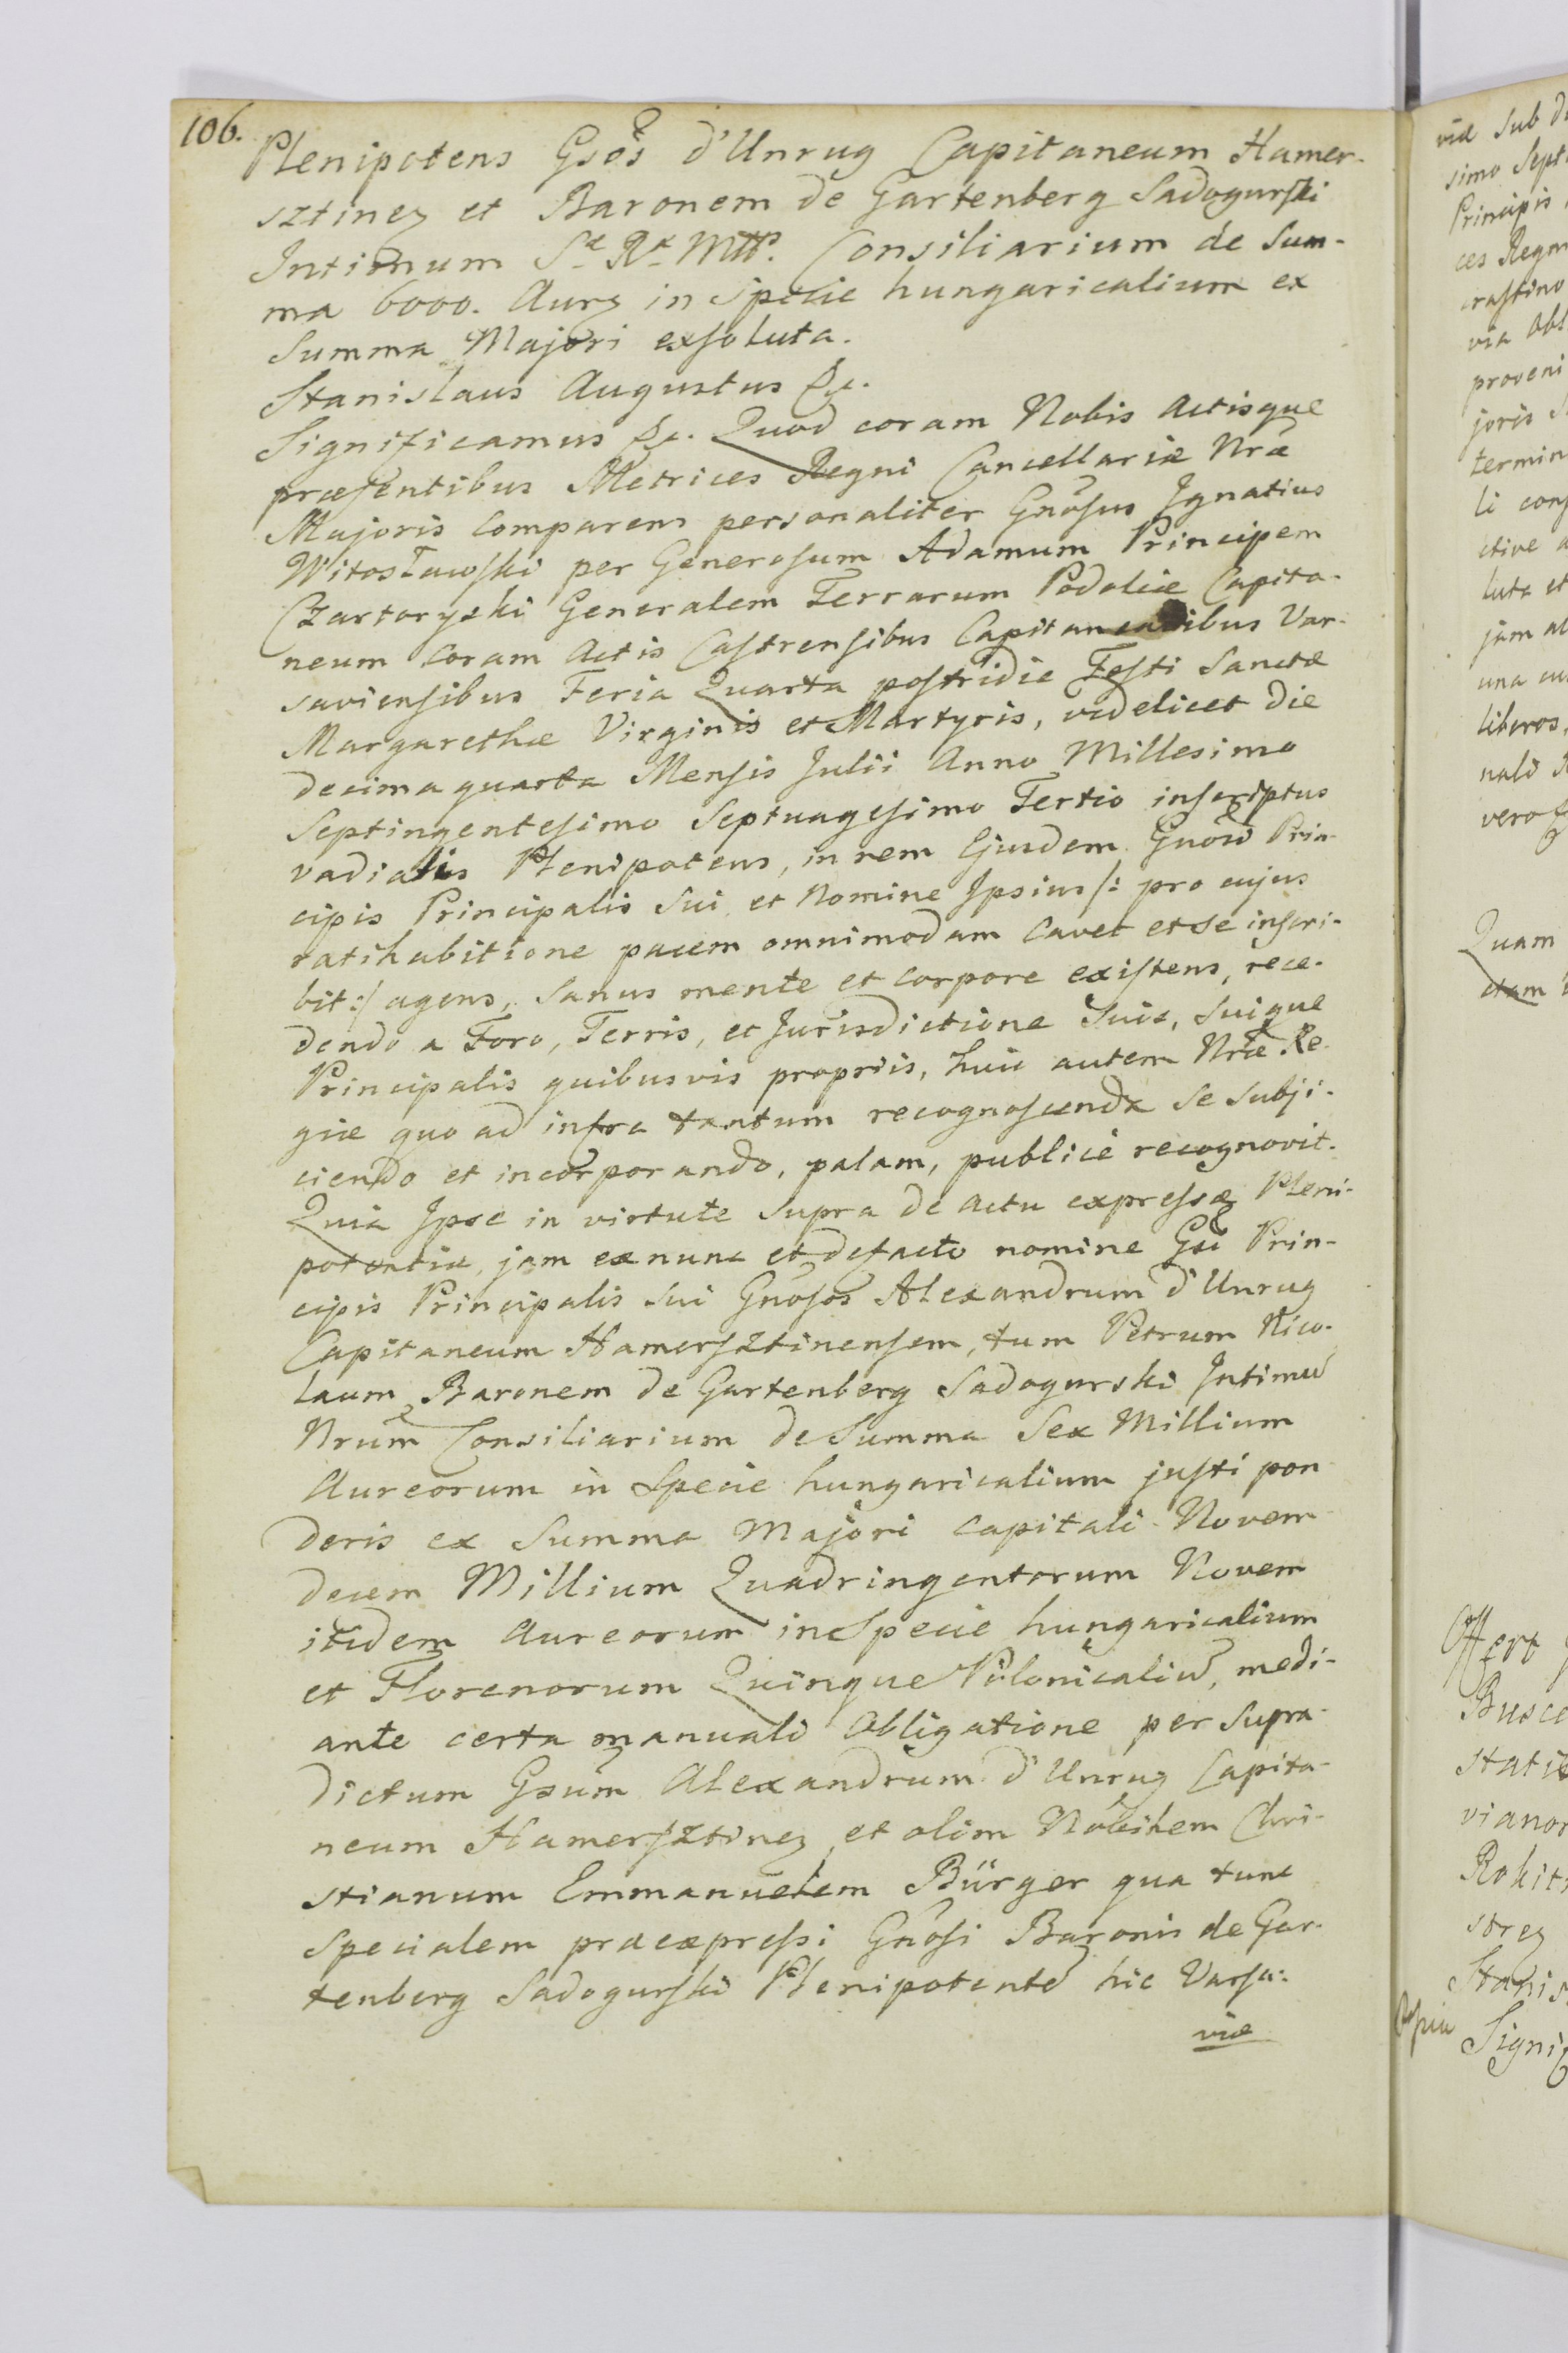 106.
Plenipotens Gsős d'Unrug Capitaneum Hamer-
sztineɱ et Baronem de Gartenberg Sadogurski
Intimum Sæ Ræ Mttis. Consiliarium de Sum-
ma 6000. Aurɱ in Specie hungaricalium ex
Summa Majori exsoluta.
Stanislaus Augustus &c.
Significamus &c. Quod coram Nobis Actisque
præsentibus Metrices Regni Cancellariæ Nræ
Majoris Comparens personaliter Gnosus Ignatius
Witosławski per Generosum Adamum Principem
Czartoryski Generalem Terrarum Podoliæ Capita-
neum Coram Actis Castrensibus Capitanealibus Var-
saviensibus Feria Quarta postridie Festi Sanctæ
Margarethæ Virginis et Martyris, videlicet die
decima quarta Mensis Julii Anno Millesimo
Septingentesimo Septuagesimo Tertio inscriptus
vadialis Plenipotens, in rem Ejusdem Gnosi Prin-
cipis Principalis Sui et Nomine Ipsius /: pro cujus
ratihabitione pacem omnimodam Cavet et se inscri-
bit :/ agens, Sanus mente et Corpore existens, rece-
dendo a Foro, Terris, et Jurisdictione Suis, Suique
Principalis quibusvis propriis, huic autem Nræ Re-
giæ quo ad infra tantum recognoscenda Se Subji-
ciendo et incorporando, palam, publice recognovit.
Quia Ipse in virtute Supra de Actu expressæ Pleni-
potentiæ, jam ex nunc et defacto nomine Gsi Prin-
cipis Principalis Sui Gnosos Alexandrum d'Unrug
Capitaneum Hamersztinensem, tum Petrum Nico-
laum Baronem de Gartenberg Sadogurski Intimū
Nrum Consiliarium de Summa Sex Millium
Aureorum in Specie hungaricalium justi pon
deris ex Summa Majori Capitali Novem
decem Millium Quadringentorum Novem
itidem Aureorum in Specie hungaricalium
et Florenorum Quinque Polonicaliū, medi-
ante certa manuali Obligatione per Supra-
dictum Gsum Alexandrum d'Unrug Capita-
neum Hamersztineɱ et olim Nobilem Chri-
stianum Emmanuelem Bürger qua tunc
Specialem præexpressi Gnosi Baronis de Gar-
tenberg Sadogurski Plenipotentē hic Varsa-
viæ
viæ Sub
simo Sept
Principis
ces Regn
crastino
via Obl
proveni
joris
termin
li cons
ctive
luta et
jam
una
liberos,
nald
vero
Quam
ctam
Offert
Busce
Stati
vianor
Rokit
Stanis
Signi